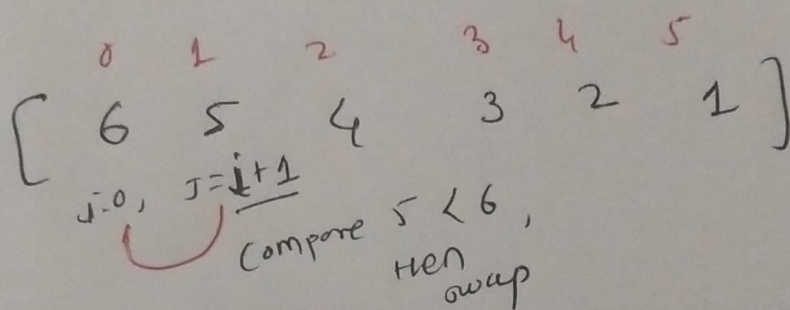 0 1 2 3 4 5
[ 6 5 4 3 2 1 ]
i=0, J=i+1
Compare 5 < 6,
then
swap